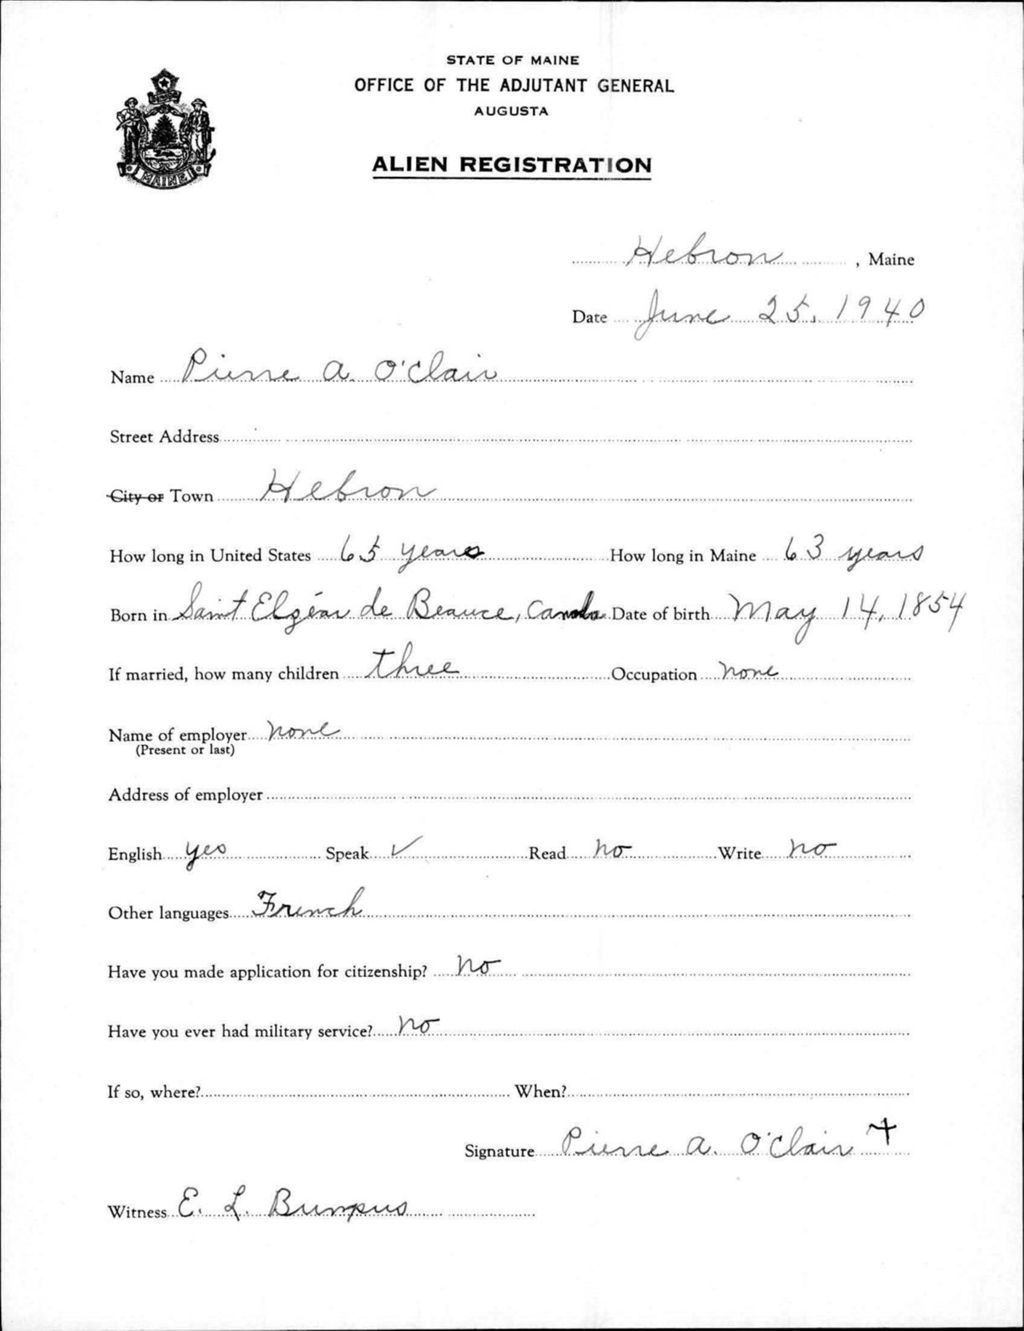 STATE OF MAINE
OFFICE OF THE ADJUTANT GENERAL
AUGUSTA
ALIEN REGISTRATION
MAINE
Hebron, Maine
Date June 25, 1940
Name Pierre A. O'Clair
Street Address
City or Town Hebron
How long in United States 65 years How long in Maine 63 years
Born in Saint Elzéar de Beauce, Canada Date of birth May 14, 1854
If married, how many children three Occupation none
Name of employer none
(Present or last)
Address of employer
English yes Speak ✓ Read no Write no
Other languages French
Have you made application for citizenship? no
Have you ever had military service? no
If so, where? When?
Signature Pierre A. O'Clair +
Witness E. L. Bumpus